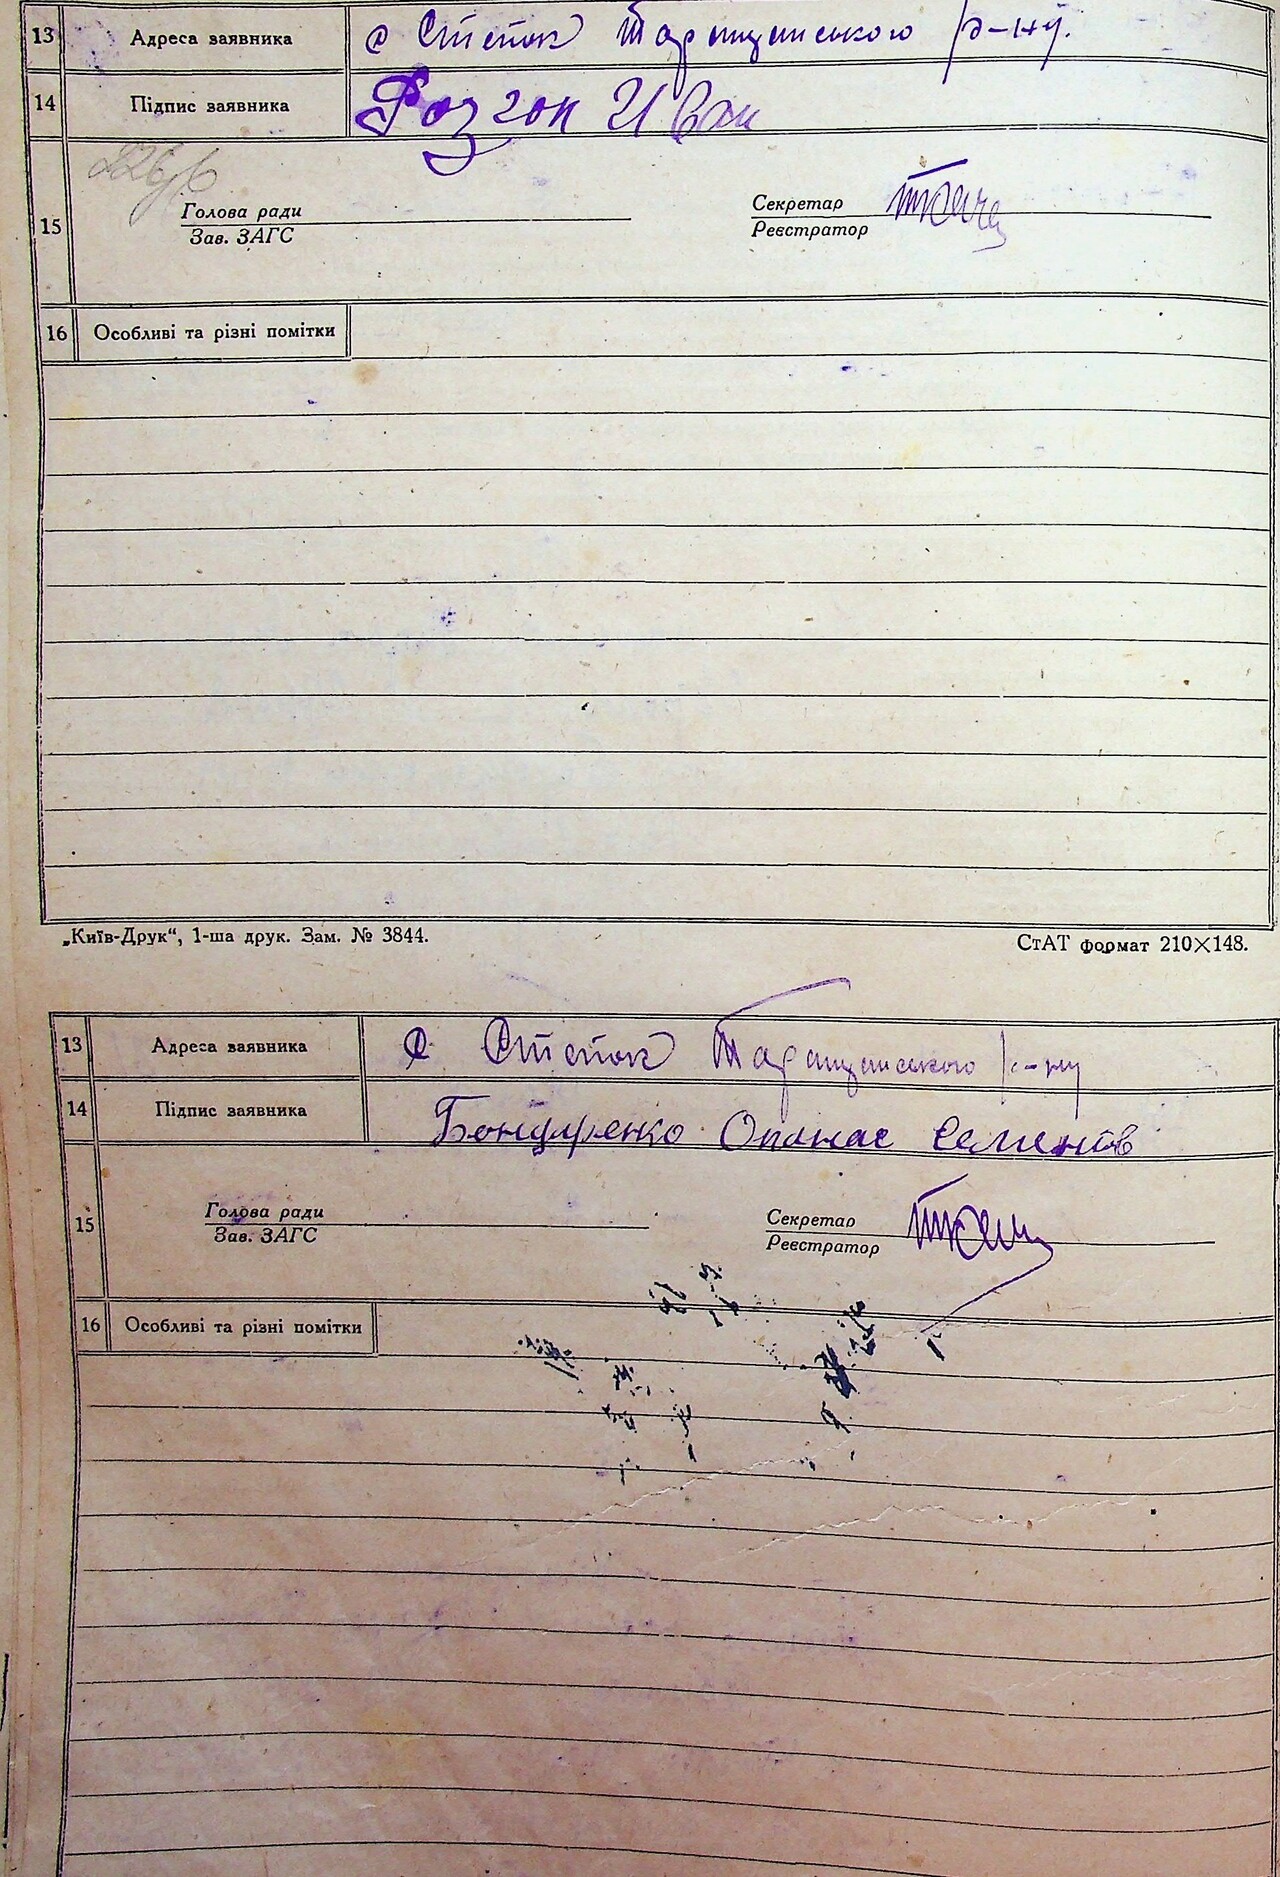 13 Адреса заявника с Степок Таращанського р-ну.
14 Підпис заявника Розгон Иван
15
Голова ради
Зав. ЗАГС
Секретар
Реєстратор
16 Особливі та різні помітки
„Київ-Друк“, 1-ша друк. Зам. № 3844. СтАТ формат 210×148.
13 Адреса заявника с Степок Таращанського р-ну
14 Підпис заявника Бондаренко Опанас Семенов
15
Голова ради
Зав. ЗАГС
Секретар
Реєстратор
16 Особливі та різні помітки